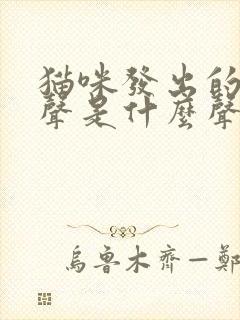 貓咪發出的
聲是什麼聲
烏魯木齊—鄭